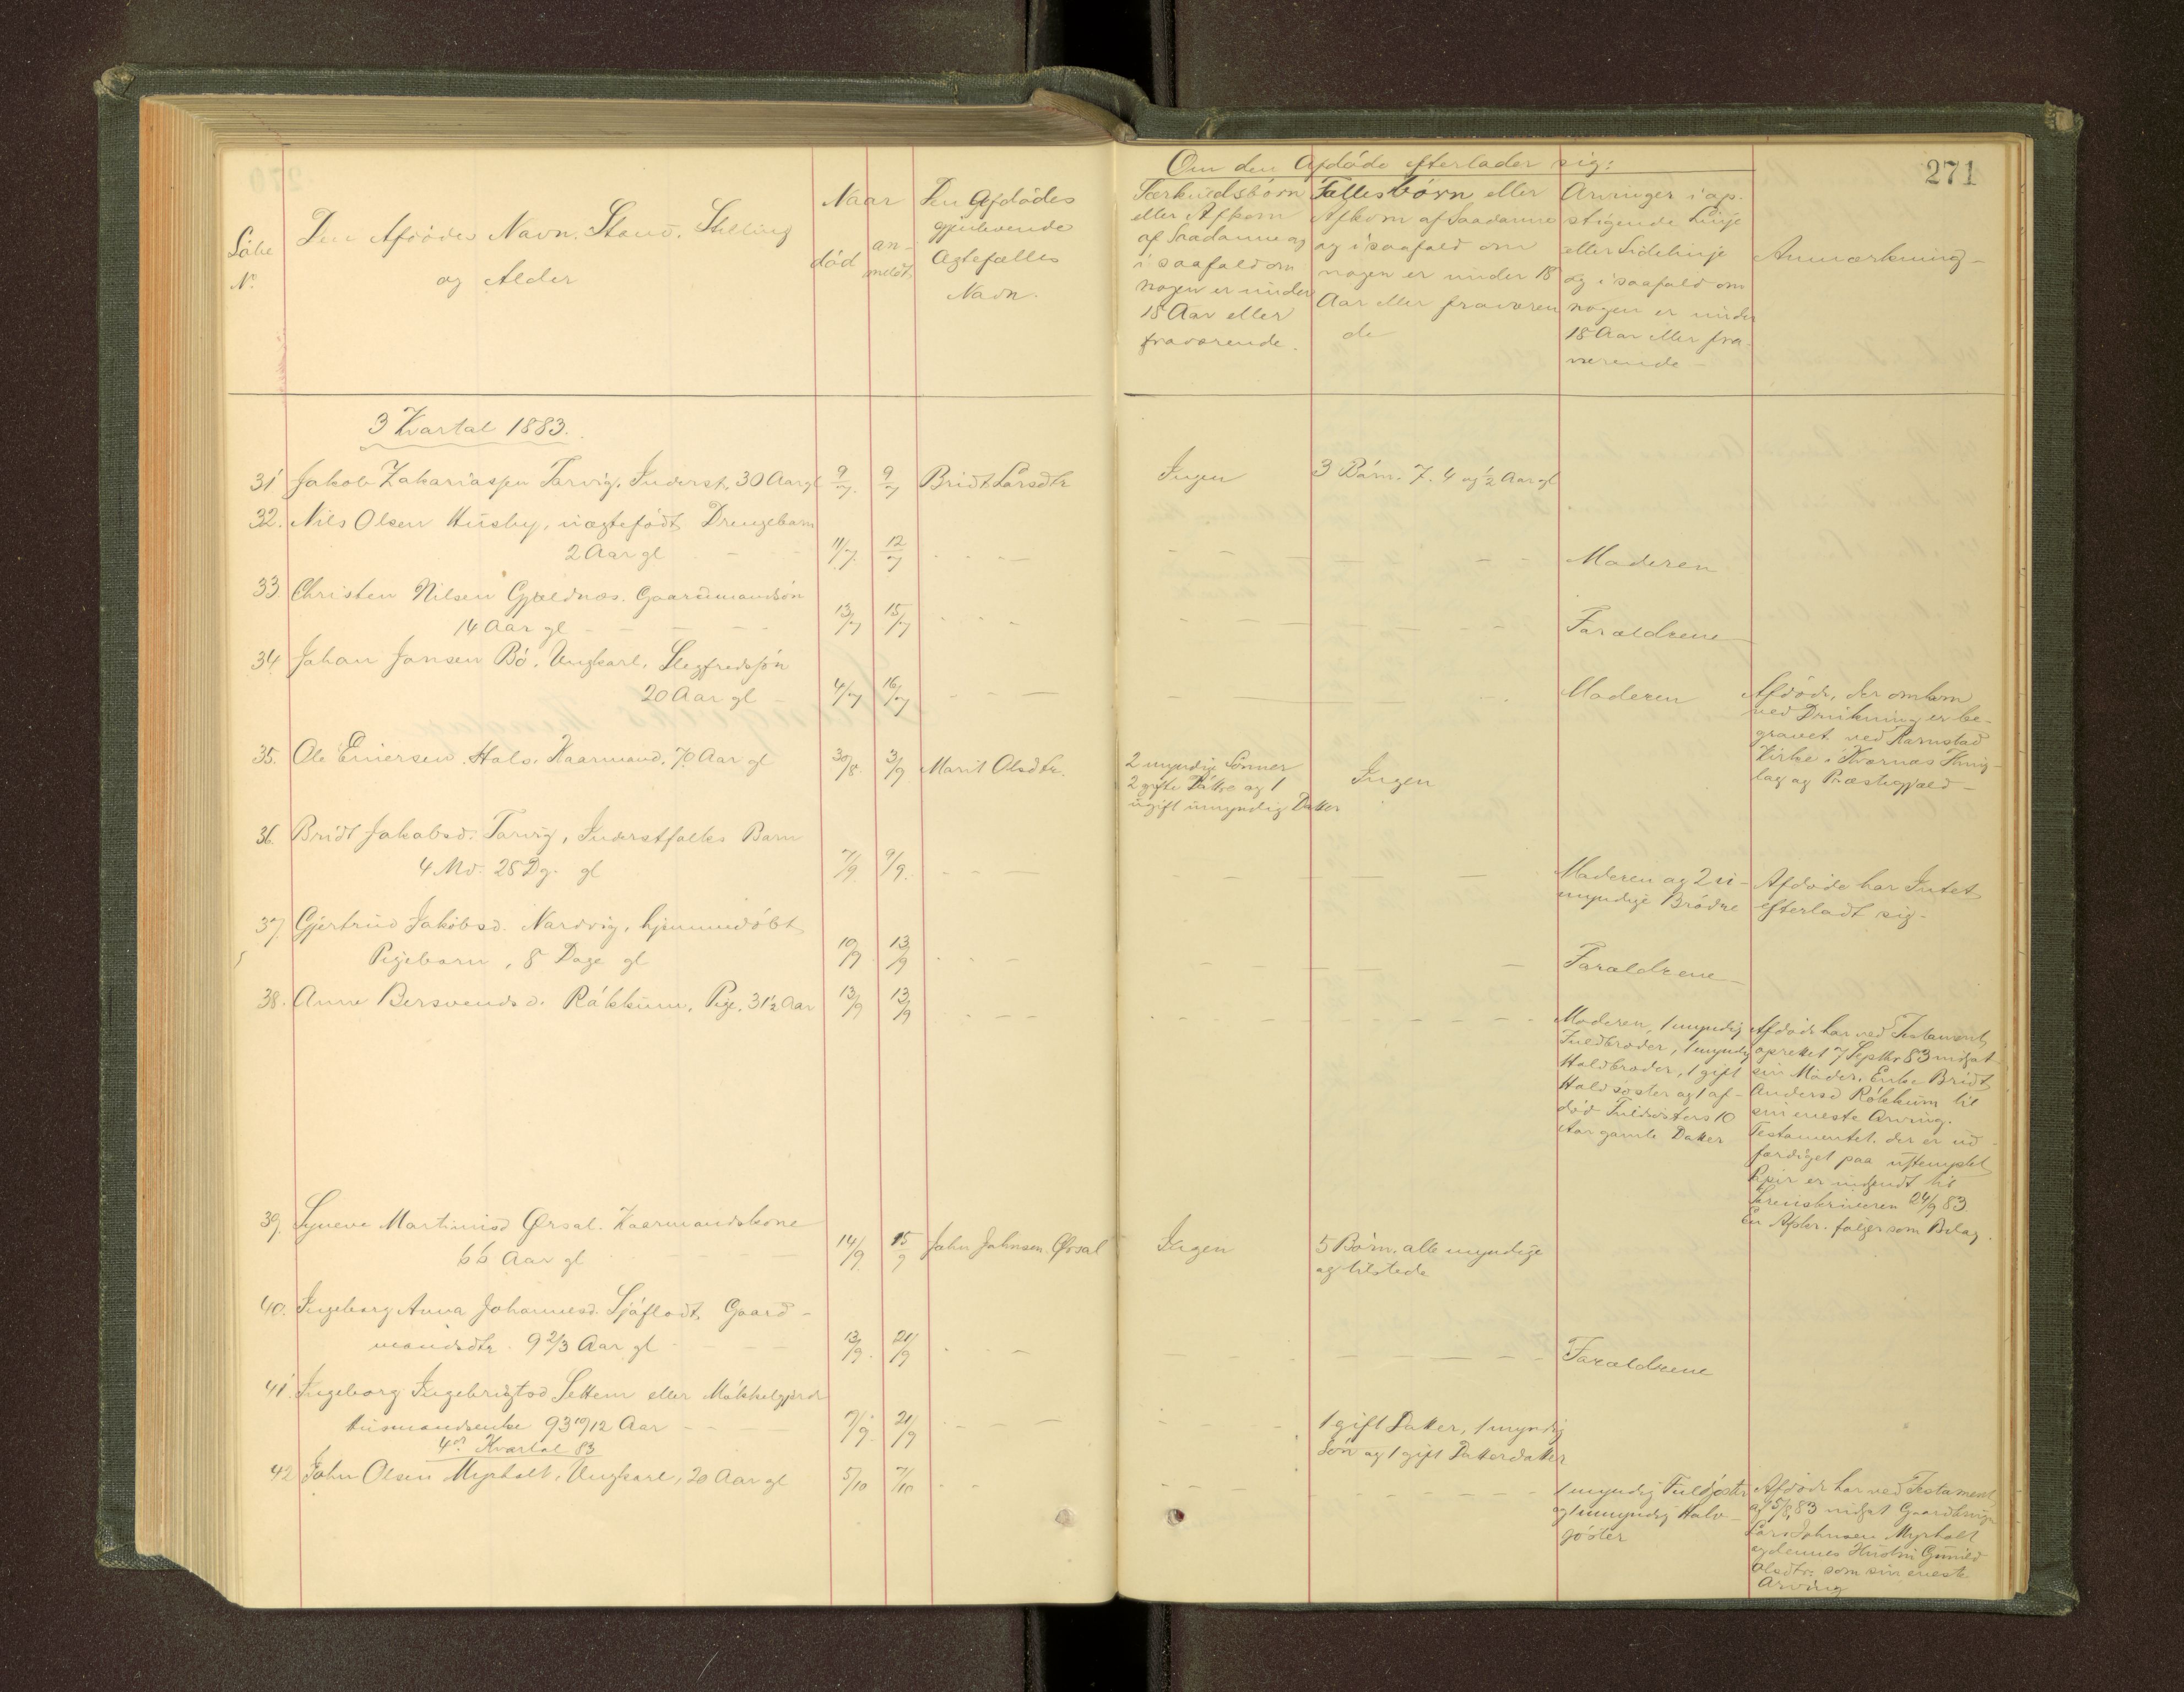 271
Løbe
No
Den Afdødes Navn. Stand. Stilling
og Alder
Naar
død
an-
meldt.
Den Afdødes
gjenlevende
Ægtefælles
Navn.
Om den Afdøde efterlader sig:
Særkuldsbörn
eller Afkom
af Saadanne og
i saafald om
nogen er under
18 Aar eller
fraværende.
Fællesbörn eller
Afkom af Saadanne
og i saafald om
nogen er under 18
Aar eller fraværen
de
Arvinger i op-
stigende Linje
eller Sidelinje
og i saafald om
nogen er under
18 Aar eller fra-
værende
Anmærkning
3 Kvartal 1883.
31 Jakob Zakariassen Torvig. Inderst, 30 Aar gl 9/7. 9/7 Bridt Larsdtr Ingen 3 Börn. 7. 4 og ½ Aar gl
32. Nils Olsen Husby, uægtefödt Drengebarn
2 Aar gl 11/7. 12/7 Moderen
33. Christen Nilsen Gjældnæs. Gaardmandsön
14 Aar gl 13/7 15/7 Forældrene
34 Johan Jonsen Bö. Ungkarl, Slegfredsön
20 Aar gl 4/7 16/7 Moderen
Afdöde, der omkom
ved Drukning er be-
gravet ved Kornstad
Kirke i Kvernæs Thing-
lag og Præstegjæld
35. Ole Einersen Hals. Kaarmand. 70 Aar gl 30/8. 3/9 Marit Olsdtr.
2 myndige Sönner
2 gifte Döttre og 1
ugift umyndig Datter
Ingen
36. Bridt Jakobsd. Torvig, Inderstfolks Barn
4 Md. 25 Dg. gl 7/9 9/9.
Moderen og 2 u-
myndige Brödre
Afdöde har Intet
efterladt sig-
37. Gjertrud Jakobsd. Nordvig, hjemmedöbt
Pigebarn, 8 Dage gl 10/9 13/9 Forældrene
38. Anne Bersvendsd. Rökkum, Pige, 31½ Aar 13/9 13/9
Moderen, 1 myndig
Fuldbroder, 1 myndig
Halvbroder, 1 gift
Halvsøster og 1 af-
död Fuldsösters 10
Aar gamle Datter
Afdöde har ved Testament
oprettet 7 Septbr 83 indsat
sin Moder, Enke Bridt
Andersd Rökkum til
sin eneste Arving.
Testamentet, der er ud-
færdiget paa ustemplet
Papir er indsendt til
Sorenskriveren 24/9 83
En Afskr. følger som Bilag.
39. Synneve Martinusd Ørsal. Kaarmandskone
66 Aar gl 14/9 15/9 John Johnsen Ørsal Ingen
5 Börn. alle myndige
og tilstede
40. Ingeborg Anna Johannesd. Sjöflodt, Gaard-
mandsdtr. 9 2/3 Aar gl 13/9. 21/9 Forældrene
41. Ingeborg Ingebrigtsd Settem eller Mökkelgjerde
Husmandsenke 93 10/12 Aar 9/9. 21/9
1 gift Datter, 1 myndig
Sön og 1 gift Datterdatter
4de Kvartal 83
42 John Olsen Myrholt, Ungkarl, 20 Aar gl 5/10 7/10
1 myndig Fuldsöster
og 1 umyndig Halv-
söster
Afdöde har ved Testament
af 5/8 83 indsat Gaardbruger
Lars Johnsen Myrholt
og dennes Hustru Gunild
Olsdtr. som sin eneste
Arving